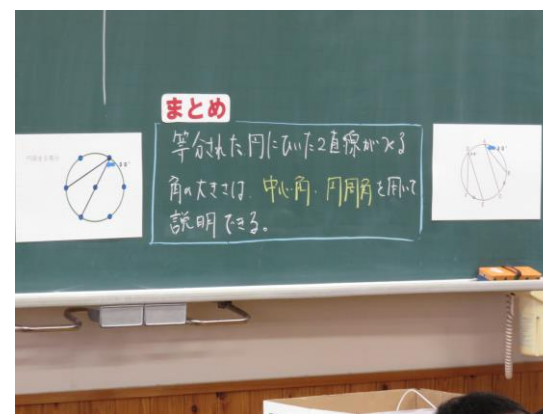 まとめ
等分された円にひいた2直線がつくる
角の大きさは、中心角、円周角を用いて
説明できる。